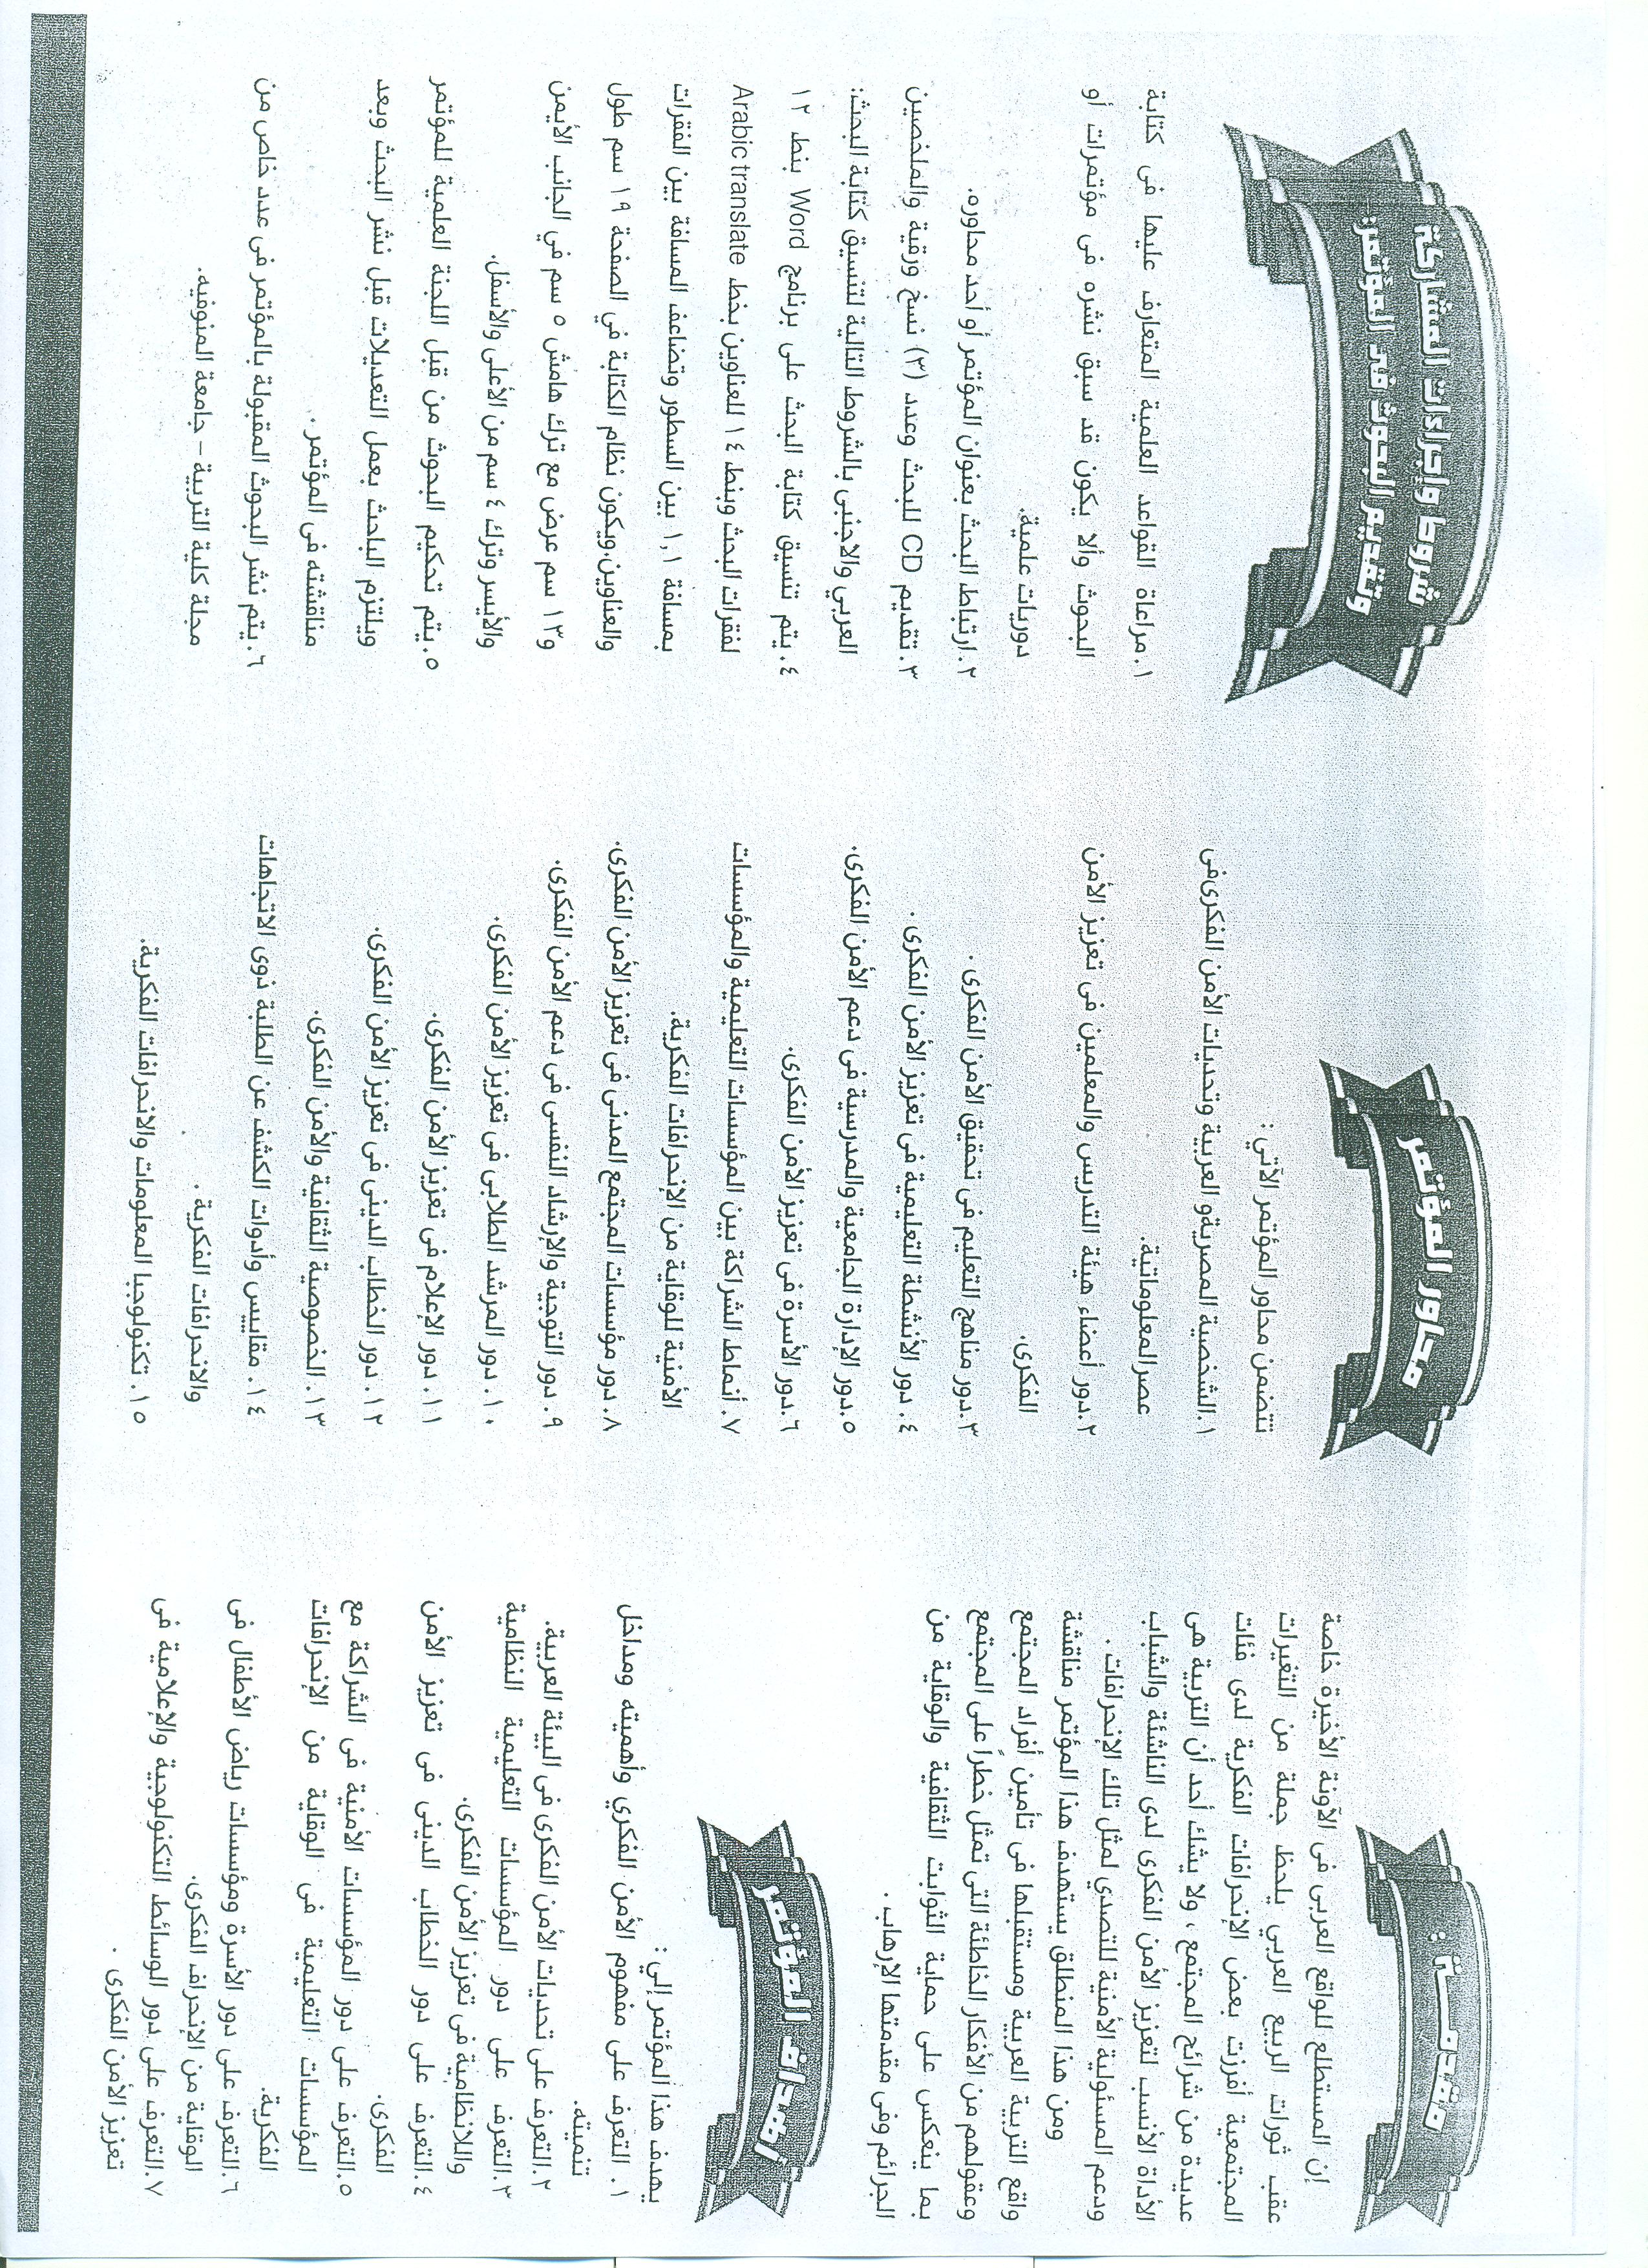 مقدمـــة :
إن المستطلع للواقع العربى فى الآونة الأخيرة خاصة
عقب ثورات الربيع العربي يلحظ جملة من التغيرات
المجتمعية أفرزت بعض الإنحرافات الفكرية لدى فئات
عديدة من شرائح المجتمع ، ولا يشك أحد أن التربية هى
الأداة الأنسب لتعزيز الأمن الفكرى لدى الناشئة والشباب
ودعم المسئولية الأمنية للتصدي لمثل تلك الإنحرافات .
ومن هذا المنطلق يستهدف هذا المؤتمر مناقشة
واقع التربية العربية ومستقبلها فى تأمين أفراد المجتمع
وعقولهم من الأفكار الخاطئة التى تمثل خطراً على المجتمع
بما ينعكس على حماية الثوابت الثقافية والوقاية من
الجرائم وفى مقدمتها الإرهاب .
أهداف المؤتمر
يهدف هذا المؤتمر إلي :
١. التعرف على مفهوم الأمن الفكري وأهميته ومداخل
تنميته.
٢.التعرف على تحديات الأمن الفكرى فى البيئة العربية.
٣.التعرف على دور المؤسسات التعليمية النظامية
واللانظامية فى تعزيز الأمن الفكرى.
٤.التعرف على دور الخطاب الدينى فى تعزيز الأمن
الفكرى.
٥.التعرف على دور المؤسسات الأمنية فى الشراكة مع
المؤسسات التعليمية فى الوقاية من الإنحرافات
الفكرية.
٦.التعرف على دور الأسرة ومؤسسات رياض الأطفال فى
الوقاية من الإنحراف الفكرى.
٧.التعرف على دور الوسائط التكنولوجية والإعلامية فى
تعزيز الأمن الفكرى .
محاور المؤتمر
تتضمن محاور المؤتمر الآتي :
١.الشخصية المصريةو العربية وتحديات الأمن الفكرىفى
عصرالمعلوماتية.
٢.دور أعضاء هيئة التدريس والمعلمين فى تعزيز الأمن
الفكرى.
٣.دور مناهج التعليم فى تحقيق الأمن الفكرى .
٤. دور الأنشطة التعليمية فى تعزيز الأمن الفكرى .
٥.دور الإدارة الجامعية والمدرسية فى دعم الأمن الفكرى.
٦.دور الأسرة فى تعزيز الأمن الفكرى.
٧. أنماط الشراكة بين المؤسسات التعليمية والمؤسسات
الأمنية للوقاية من الإنحرافات الفكرية.
٨. دور مؤسسات المجتمع المدنى فى تعزيز الأمن الفكرى.
٩. دور التوجية والإرشاد النفسى فى دعم الأمن الفكرى.
١٠. دور المرشد الطلابى فى تعزيز الأمن الفكرى.
١١. دور الإعلام فى تعزيز الأمن الفكرى.
١٢. دور الخطاب الدينى فى تعزيز الأمن الفكرى.
١٣. الخصوصية الثقافية والأمن الفكرى.
١٤. مقاييس وأدوات الكشف عن الطلبة ذوى الاتجاهات
والانحرافات الفكرية .
١٥. تكنولوجيا المعلومات والانحرافات الفكرية.
شروط وإجراءات المشاركة
وتقديم البحوث فى المؤتمر:
١.مراعاة القواعد العلمية المتعارف عليها فى كتابة
البحوث وألا يكون قد سبق نشره فى مؤتمرات أو
دوريات علمية.
٢.ارتباط البحث بعنوان المؤتمر أو أحد محاوره.
٣.تقديم CD للبحث وعدد (٣) نسخ ورقية والملخصين
العربي والاجنبى بالشروط التالية لتنسيق كتابة البحث:
٤.يتم تنسيق كتابة البحث على برنامج Word بنط ١٢
لفقرات البحث وبنط ١٤ للعناوين بخط Arabic translate
بمسافة ١,١ بين السطور وتضاعف المسافة بين الفقرات
والعناوين،ويكون نظام الكتابة في الصفحة ١٩ سم طول
و١٣ سم عرض مع ترك هامش ٥ سم في الجانب الأيمن
والأيسر وترك ٤ سم من الأعلى والأسفل.
٥.يتم تحكيم البحوث من قبل اللجنة العلمية للمؤتمر
ويلتزم الباحث بعمل التعديلات قبل نشر البحث وبعد
مناقشته فى المؤتمر .
٦.يتم نشر البحوث المقبولة بالمؤتمر فى عدد خاص من
مجلة كلية التربية – جامعة المنوفيه.